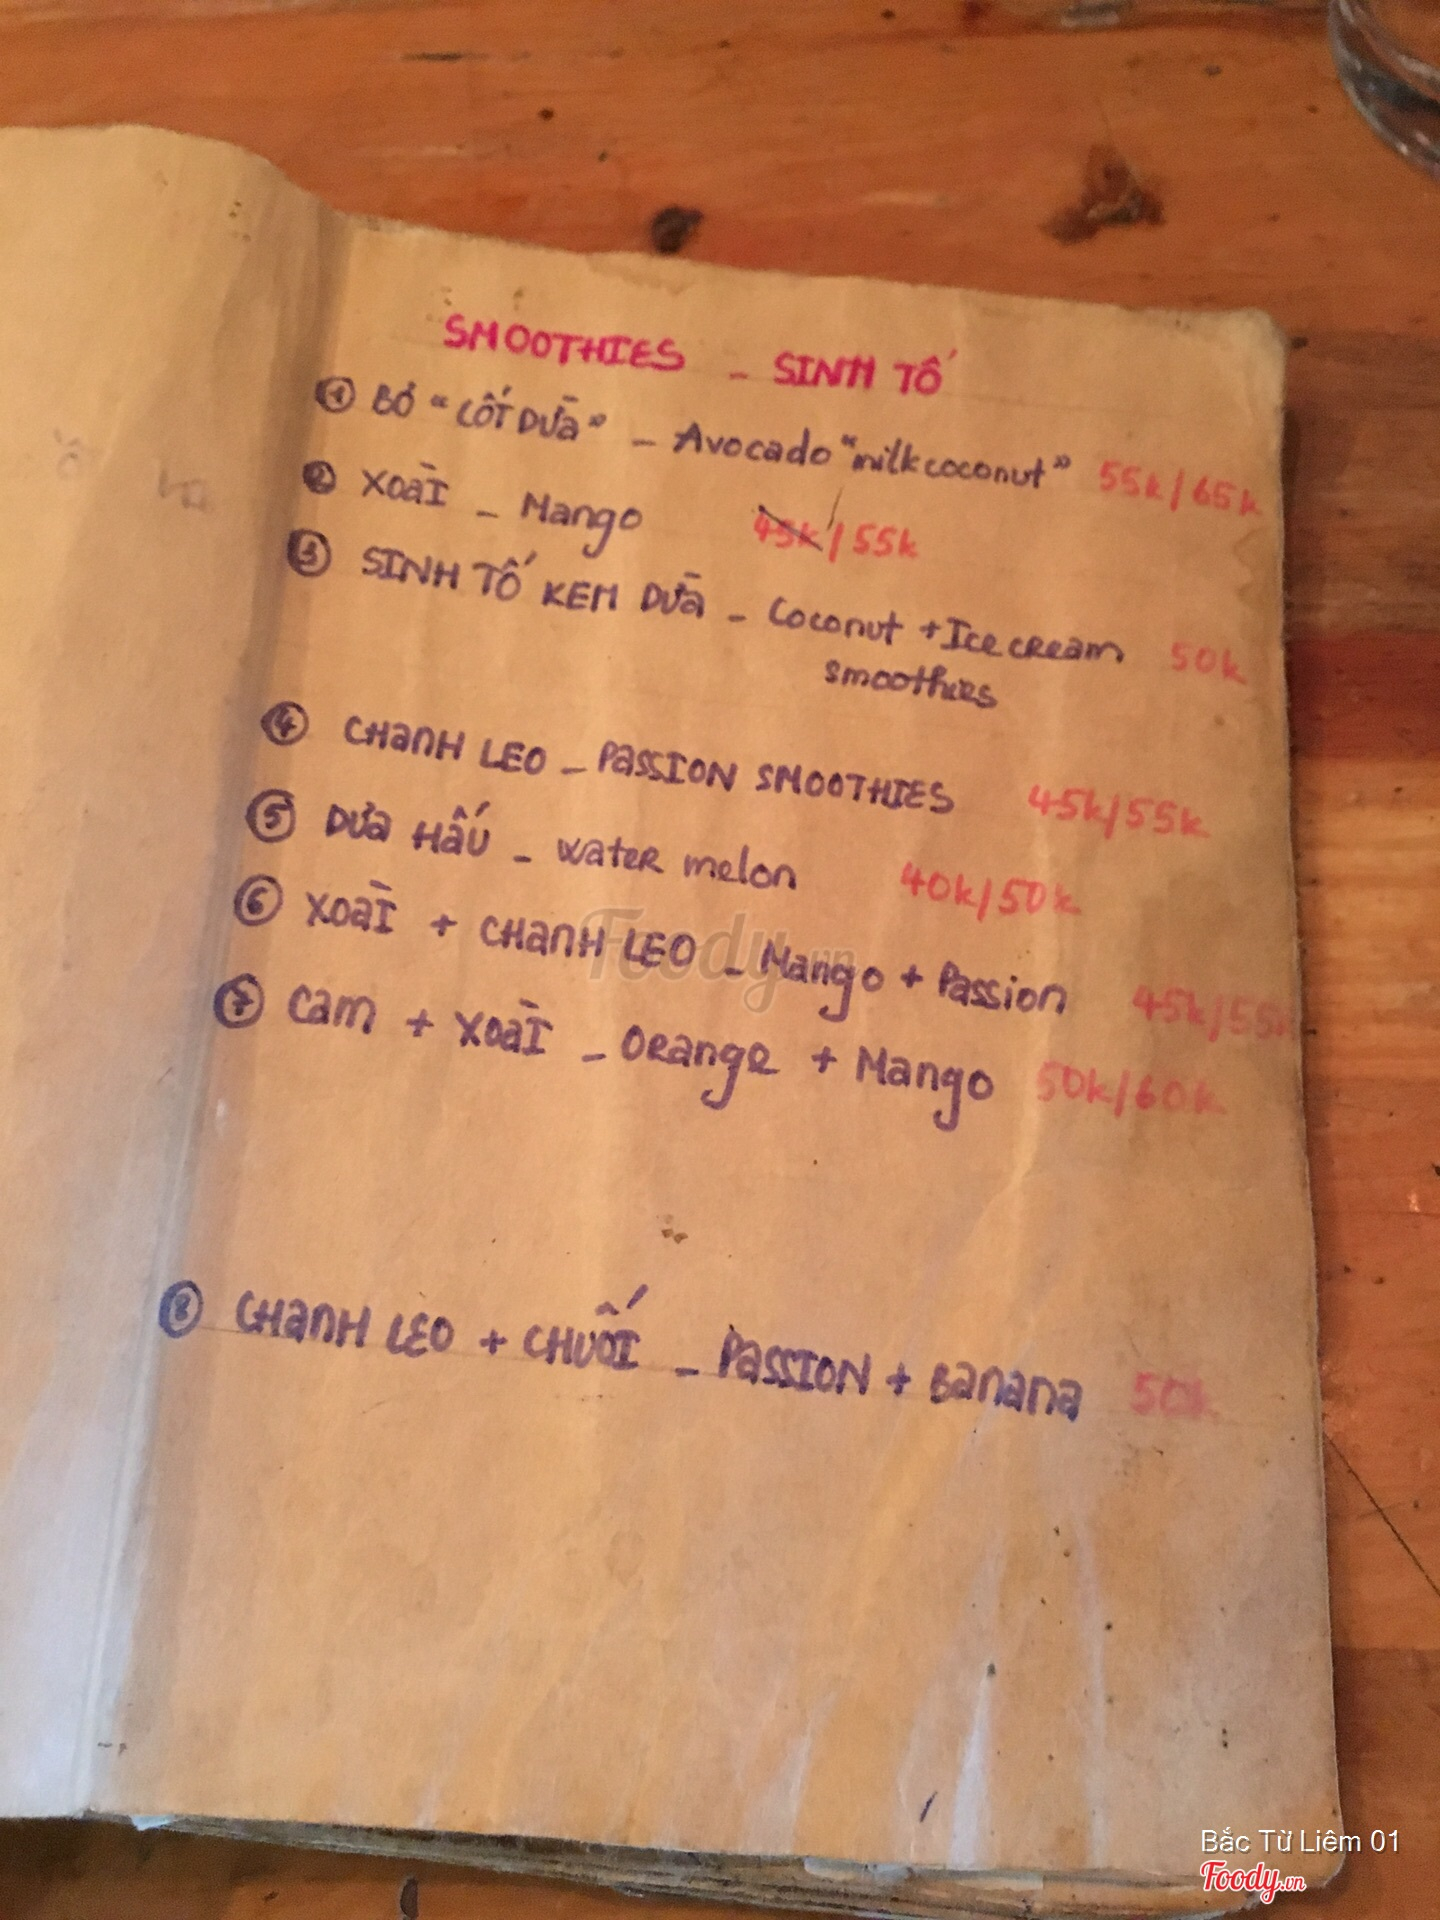 SMOOTHIES - SINH TỐ
① BƠ "CỐT DỪA" - Avocado "milk coconut" 55k/65k
② XOÀI - Mango 45k/55k
③ SINH TỐ KEM DỪA - Coconut + Ice cream 50k
smoothies
④ CHANH LEO - PASSION SMOOTHIES 45k/55k
⑤ DƯA HẤU - water melon 40k/50k
⑥ XOÀI + CHANH LEO - Mango + Passion 45k/55k
⑦ Cam + XOÀI - Orange + Mango 50k/60k
⑧ CHANH LEO + CHUỐI - PASSION + Banana 50k
Foody.vn
Bắc Từ Liêm 01
Foody.vn